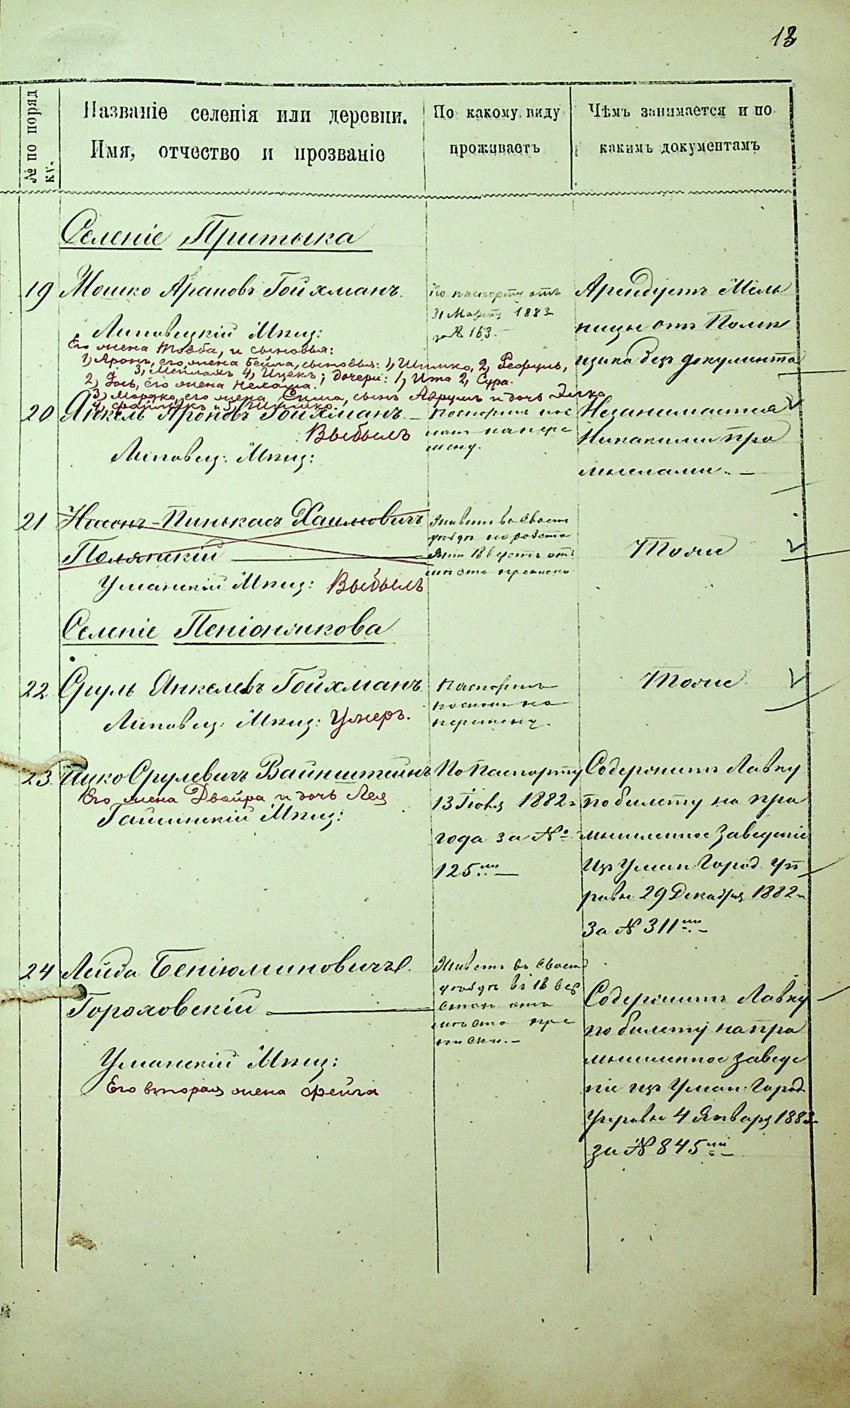 13
№ по поряд
ку.
Названіе селенія или деревни.
Имя, отчество и прозваніе
По какому виду
проживаетъ
Чѣмъ занимается и по
какимъ документамъ
Селеніе Притыка
19 Мошко Ароновъ Гойхманъ.
Липовецкій Мѣщ:
Его жена Товба, и сыновья:
1) Аронъ, его жена Бейла, сыновья: 1) Шимко, 2)
3) Мейлахъ 4) Ицекъ; дочери: 1) Ита 2) Сура.
2) его жена Нехама!
3) Мордко, его жена Сима, сынъ и дочь
По паспорту отъ
31 Марта 1883
за № 163.
Арендуетъ Мель
ницы отъ
щика безъ документа
20 Янкель Ароновъ Гойхманъ
Выбылъ
Липовец: Мѣщ:
Паспортъ пос
ланъ на пере
мену.
Незанимается
Никакими про
мыслами. –
21 Нусонъ-Пинькасъ Хаимовичъ
Полянскій
Уманскій Мѣщ: Выбылъ
Живетъ въ своемъ
уездѣ на разсто
яніи 18 верстъ отъ
места приписки
Тоже
Селеніе Пеніонжкова
22 Сруль Янкелевъ Гойхманъ
Липовец: Мѣщ: Умеръ.
Паспортъ
посланъ на
перемену.
Тоже
23 Ицко Срулевичъ Вайнштейнъ
Его жена Двойра и дочь Лея
Гайсинскій Мѣщ:
По Паспорту
13 1882
года за №
125
Содержитъ Лавку
по билету на про
мышленное Заведеніе
Изъ Уман. Город. Уп
равы 29 Декабря 1882
За № 311
24 Лейба Беніюминовичъ
Гороховскій
Уманскій Мѣщ:
Его вторая жена Фейга
Живетъ въ своемъ
уездѣ въ 18 вер
стахъ отъ
места при
писки. –
Содержитъ Лавку
по билету на про
мышленное заведе
ніе изъ Уман. Город.
Управы 4 Января 1883
за № 845